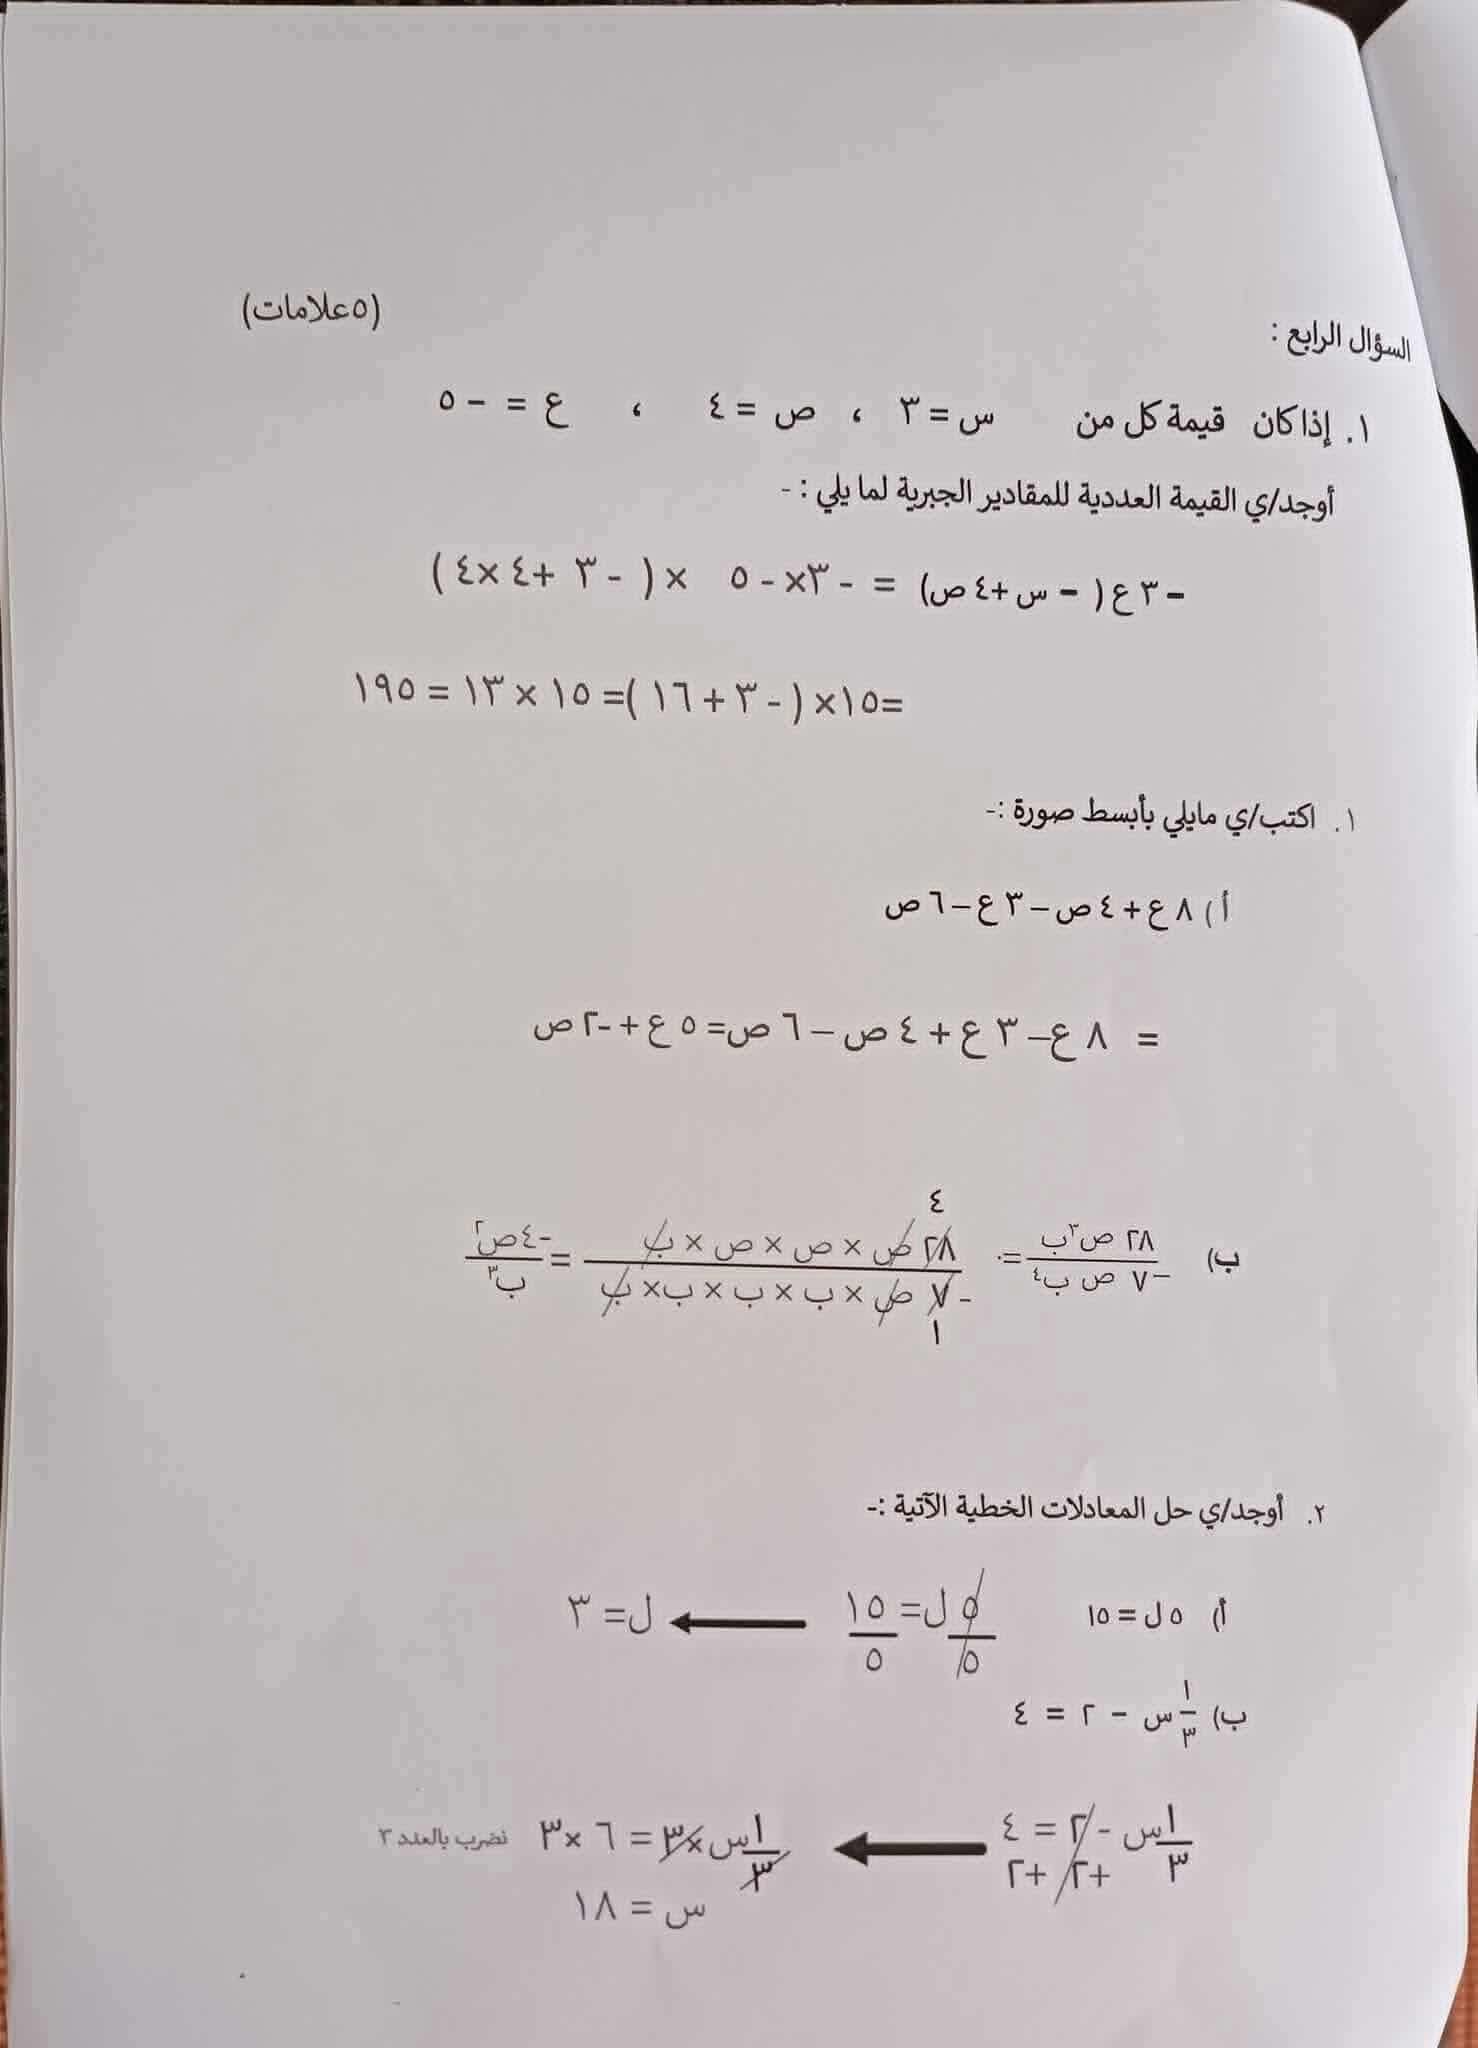 (٥علامات)
السؤال الرابع :
١. إذا كان قيمة كل من س = ٣ ، ص = ٤ ، ع = - ٥
أوجد/ي القيمة العددية للمقادير الجبرية لما يلي : -
- ٣ ع ( - س + ٤ ص) = - ٣× - ٥ × ( - ٣ + ٤ × ٤ )
= ١٥× ( - ٣ + ١٦ )= ١٥ × ١٣ = ١٩٥
١. اكتب/ي مايلي بأبسط صورة :-
أ ) ٨ ع + ٤ ص – ٣ ع – ٦ ص
= ٨ ع– ٣ ع + ٤ ص – ٦ ص= ٥ ع + -٢ ص
٤
ب) ٢٨ ص٣ب = ٢٨ ص × ص × ص × ب = -٤ص٢
- ٧ ص ب٤ - ٧ ص × ب × ب × ب× ب ب٣
١
٢. أوجد/ي حل المعادلات الخطية الآتية :-
أ) ٥ ل = ١٥ ٥ ل= ١٥ ل= ٣
٥ ٥
ب) ١/٣ س - ٢ = ٤
١/٣ س - ٢ = ٤ ١/٣ س ×٣ = ٦ × ٣ نضرب بالعدد ٣
+٢ +٢ س = ١٨